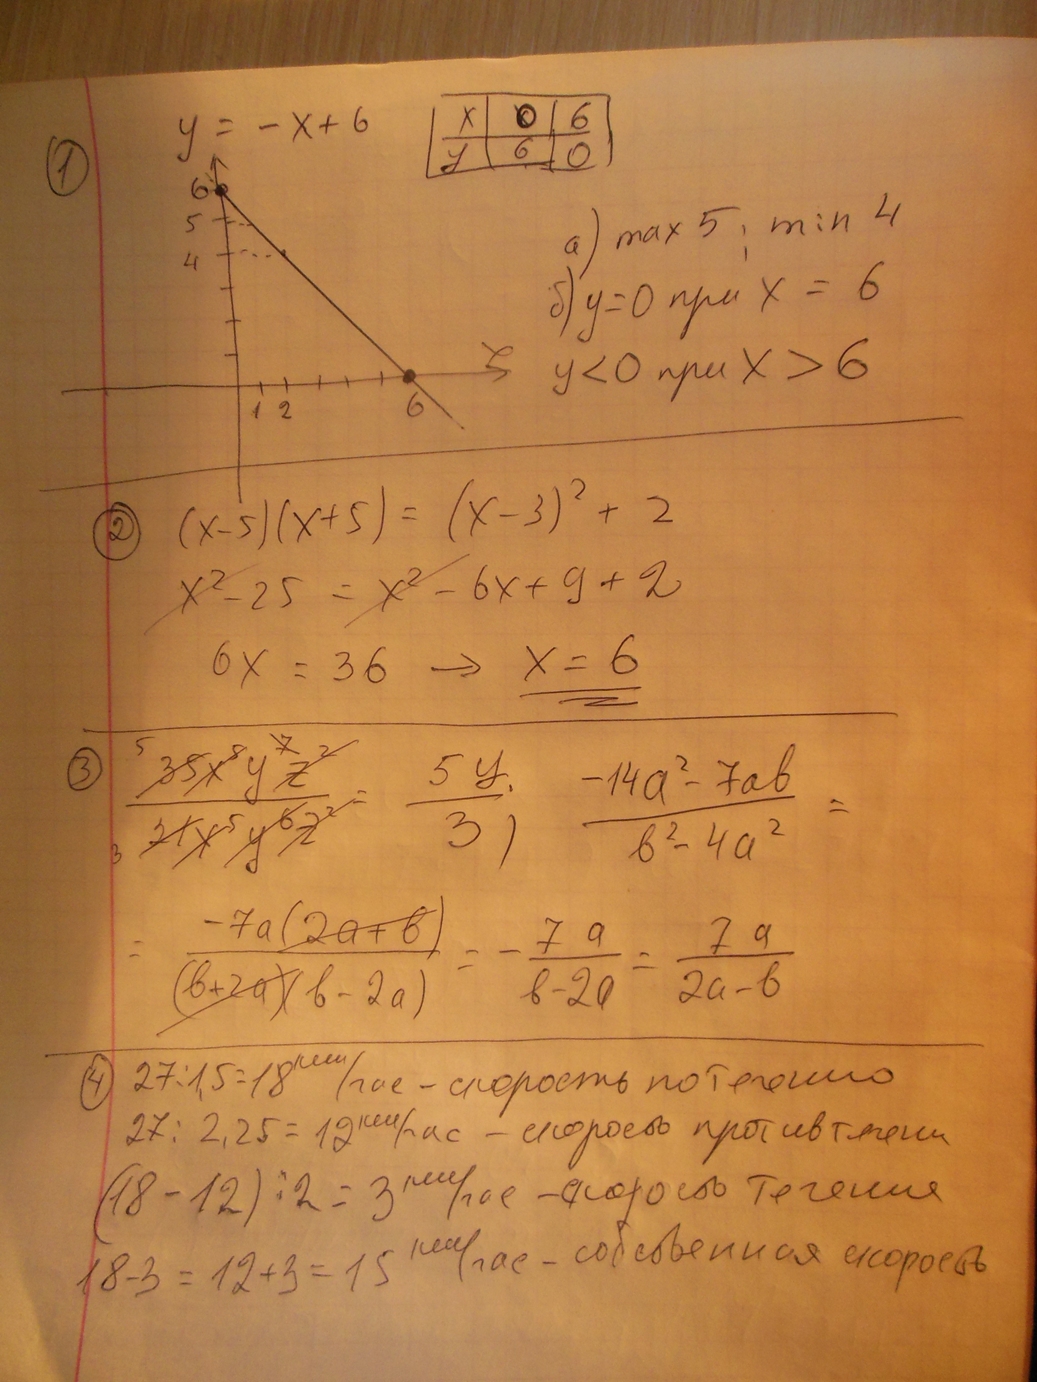 ① y = -x+6
x 0 6
y 6 0
6
5
4
1 2 6 x
а) max 5 ; min 4
б) y=0 при x = 6
y<0 при x > 6
② (x-5)(x+5) = (x-3)² + 2
x² - 25 = x² - 6x + 9 + 2
6x = 36 → x = 6
③ 5 35x⁸y⁷z² / 3 21x⁵y⁶z² = 5y / 3 ; -14a² - 7ab / b² - 4a² =
= -7a(2a+b) / (b+2a)(b-2a) = - 7a / b-2a = 7a / 2a-b
④ 27:1,5=18 км/час - скорость по течению
27: 2,25 = 12 км/час - скорость против течени
(18-12):2 = 3 км/час - скорость течения
18-3 = 12+3 = 15 км/час - собственная скорость